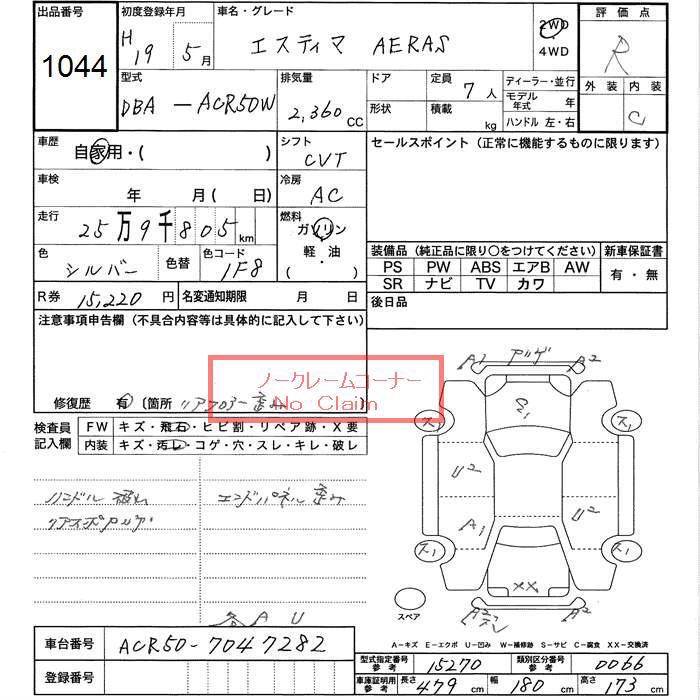 出品番号 初度登録年月 車名・グレード 評価点
1044 H 19 5月 エスティマ AERAS 2WD 4WD R
型式 排気量 ドア 定員 ディーラー・並行 外装 内装
DBA -ACR50W 2,360cc 7人 モデル年式 年 C
形状 積載 kg ハンドル 左・右
車歴 自家用・( ) シフト CVT セールスポイント (正常に機能するものに限ります)
車検 年 月( 日) 冷房 AC
走行 25万9千805km 燃料 ガソリン
軽・油
( )
色 シルバー 色替 色コード 1F8
装備品 (純正品に限り○をつけてください) 新車保証書
PS PW ABS エアB AW 有・無
SR ナビ TV カワ
R券 15,220円 名変通知期限 月 日 後日品
注意事項申告欄 (不具合内容等は具体的に記入して下さい)
ノークレームコーナー
No Claim
修復歴 有 〔箇所 リアフロアー歪み
検査員記入欄 FW キズ・飛石・ヒビ割・リペア跡・X要
内装 キズ・汚レ・コゲ・穴・スレ・キレ・破レ
ハンドル 破れ エンドパネル 歪み
リアスポアリア
各 A U
A1 アゲ A2
S1
ス1 ス1
U2
A1 U2
ス1 ス1
XX
A2 A2
スペア
A-キズ E-エクボ U-凹み W-補修跡 S-サビ C-腐食 XX-交換済
車台番号 ACR50-7047282
登録番号
型式指定番号 参考 15270 類別区分番号 参考 0066
車庫証明用 参考 長さ 479cm 幅 180cm 高さ 173cm